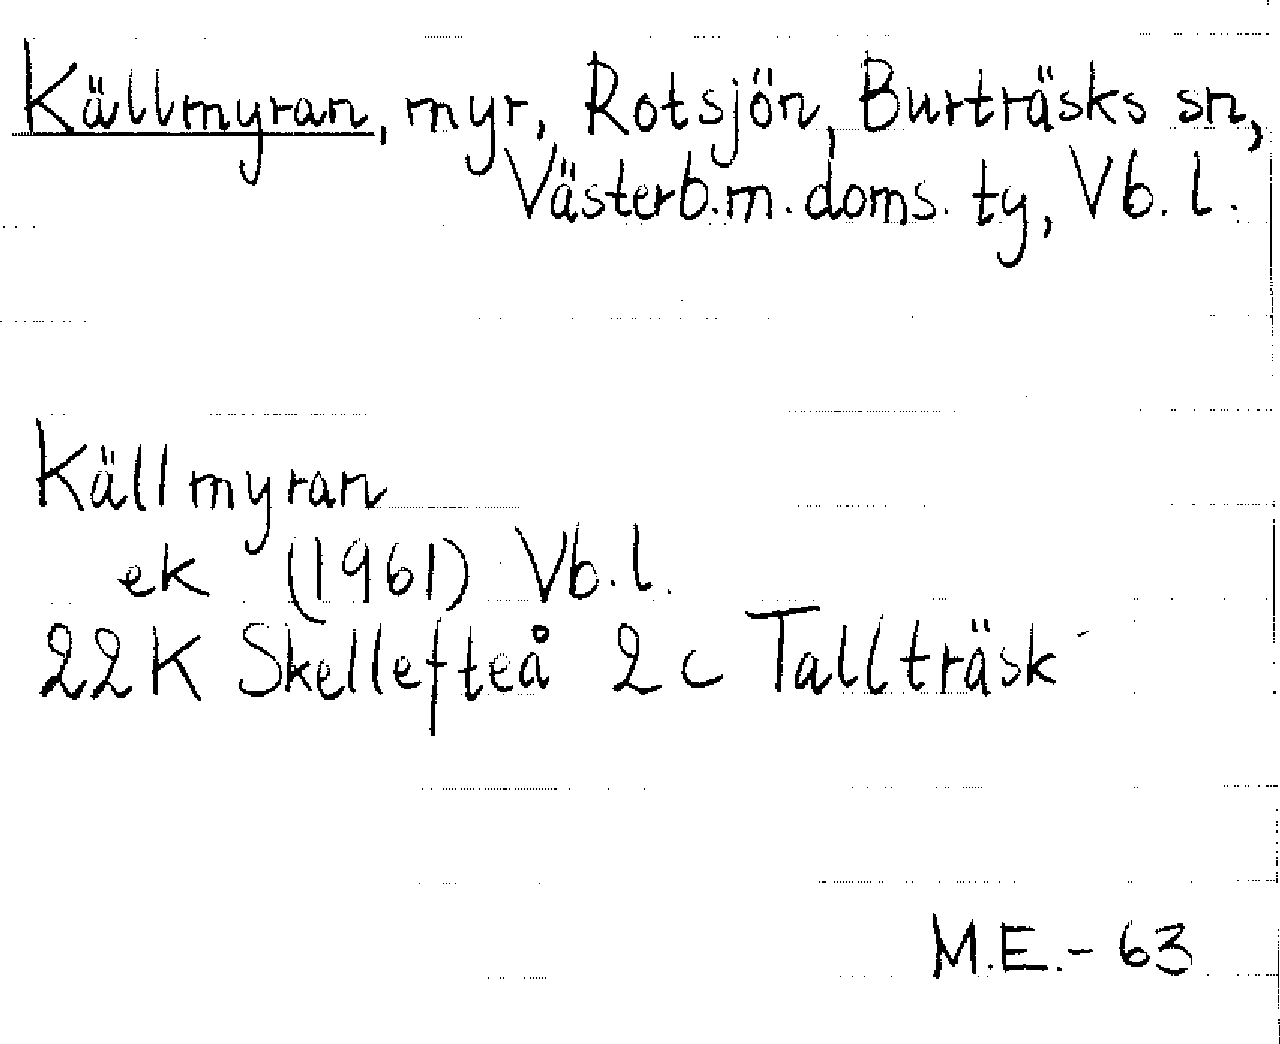 Källmyran, myr, Rotsjön, Burträsks sn,
Västerb.m. doms. ty, Vb. l.
Källmyran
ek (1961) Vb. l.
22K Skellefteå 2c Tallträsk
M.E.- 63